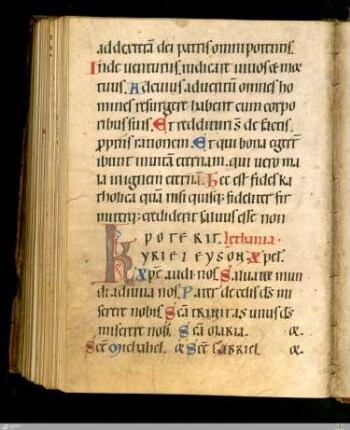 ad dexterã dei patris omnipotentis.
Inde venturus iudicare uiuos & mor
tuus. Ad cuius aduentũ omnes ho
mines resurgere habent cum corpo
ribus suis. Et reddituri s̃ de factis
p̱priis rationem. Et qui bona egerт̃
ibunt in uitã eternam. qui uero ma
la in ignem eternũ. Hec est fides ka
tholica quã nisi quisq; fideliter fir
miterq; crediderit saluus esse non
POTERIT. Lethania.
KYRIELEYSON. Xp̃el.
Xp̃e audi nos. Saluator mun
di adiuua nos. Pater de celis d̃s mi
serere nobis. Sc̃a TRINITAS unus d̃s
miserere nob. Sc̃a MARIA. or.
Sc̃e Michahel. or Sc̃e GABRIEL. or.